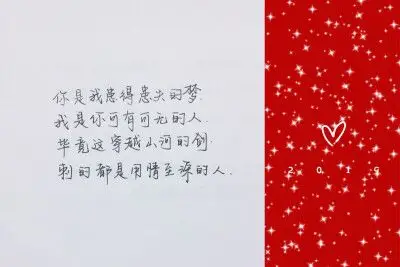 你是我患得患失的梦.
我是你可有可无的人.
毕竟这穿越山河的剑.
刺的都是用情至深的人.
2019